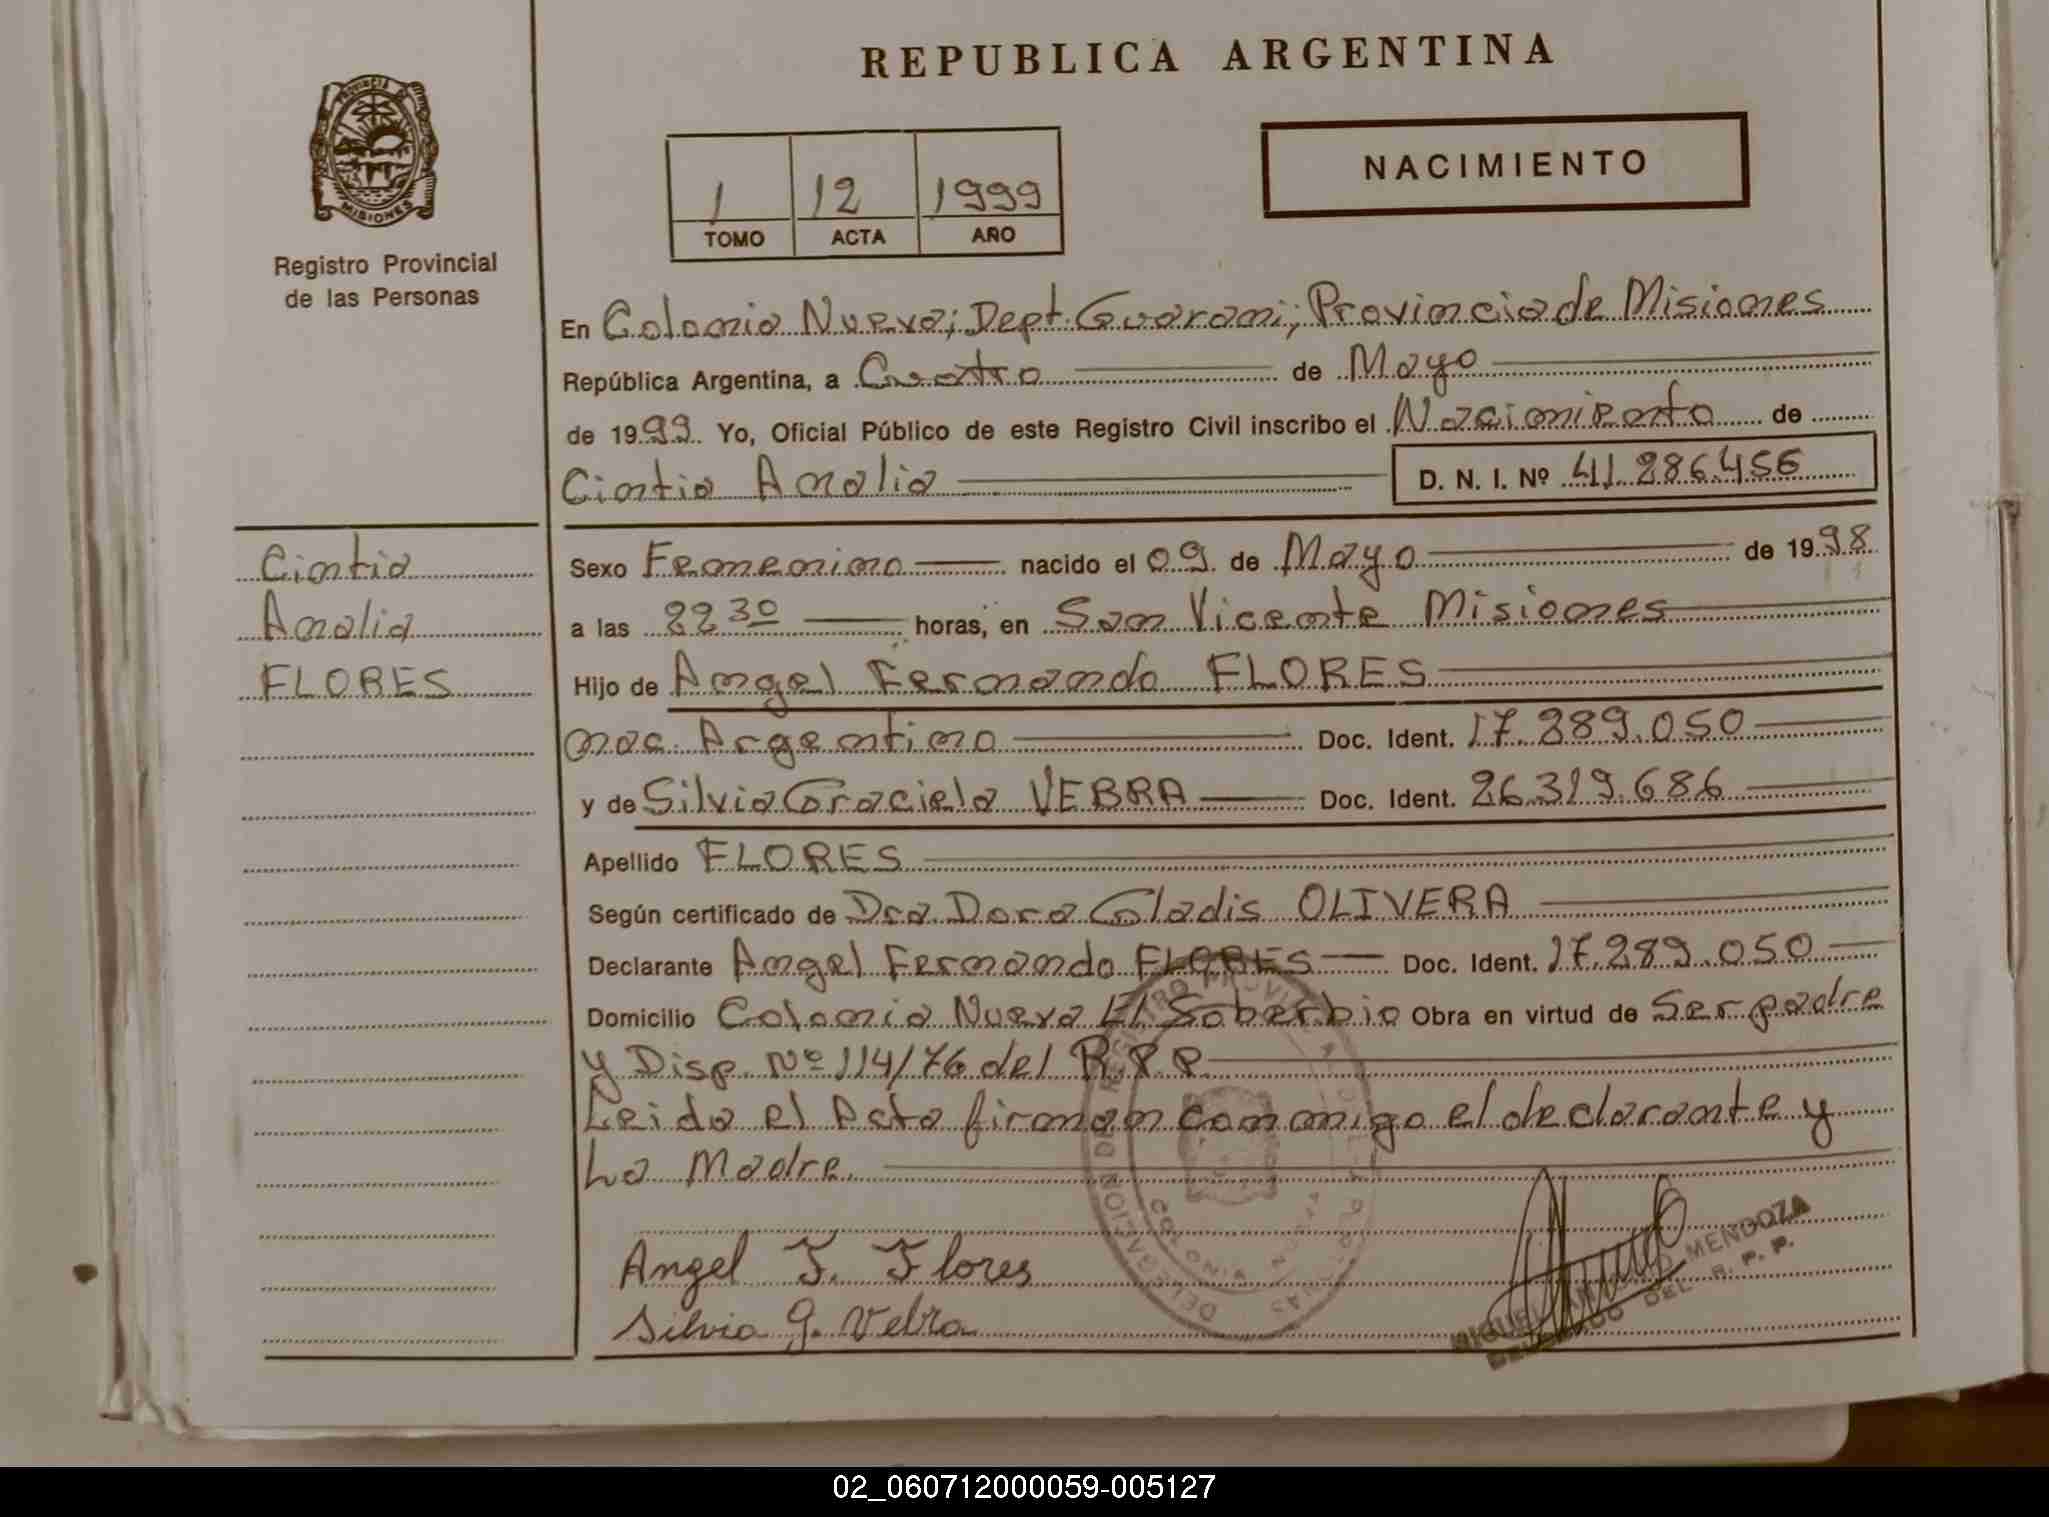 REPUBLICA ARGENTINA
PROVINCIA DE
MISIONES
Registro Provincial
de las Personas
1 12 1999
TOMO ACTA AÑO
NACIMIENTO
En Colonia Nueva; Dept. Guarani; Provincia de Misiones
República Argentina, a Cuatro de Mayo
de 1999. Yo, Oficial Público de este Registro Civil inscribo el Nacimiento de
Cintia Analia D. N. I. Nº 41.286.456
Cintia
Analia
FLORES
Sexo Femenino nacido el 09 de Mayo de 1998
a las 22 30 horas, en San Vicente Misiones
Hijo de Angel Fernando FLORES
nac. Argentino Doc. Ident. 17.289.050
y de Silvia Graciela VEBRA Doc. Ident. 26.319.686
Apellido FLORES
Según certificado de Dra. Dora Gladis OLIVERA
Declarante Angel Fernando FLORES Doc. Ident. 17.289.050
Domicilio Colonia Nueva El Soberbio Obra en virtud de Ser padre
y Disp. Nº 114/76 del R.P.P.
Leida el Acta firman conmigo el declarante y
La Madre.
Angel F. Flores
Silvia G. Vebra
DELEGACION DE REGISTRO PROVINCIAL DE LAS PERSONAS
COLONIA NUEVA
MIGUEL ANTONIO MENDOZA
DELEGADO DEL R. P. P.
02_060712000059-005127